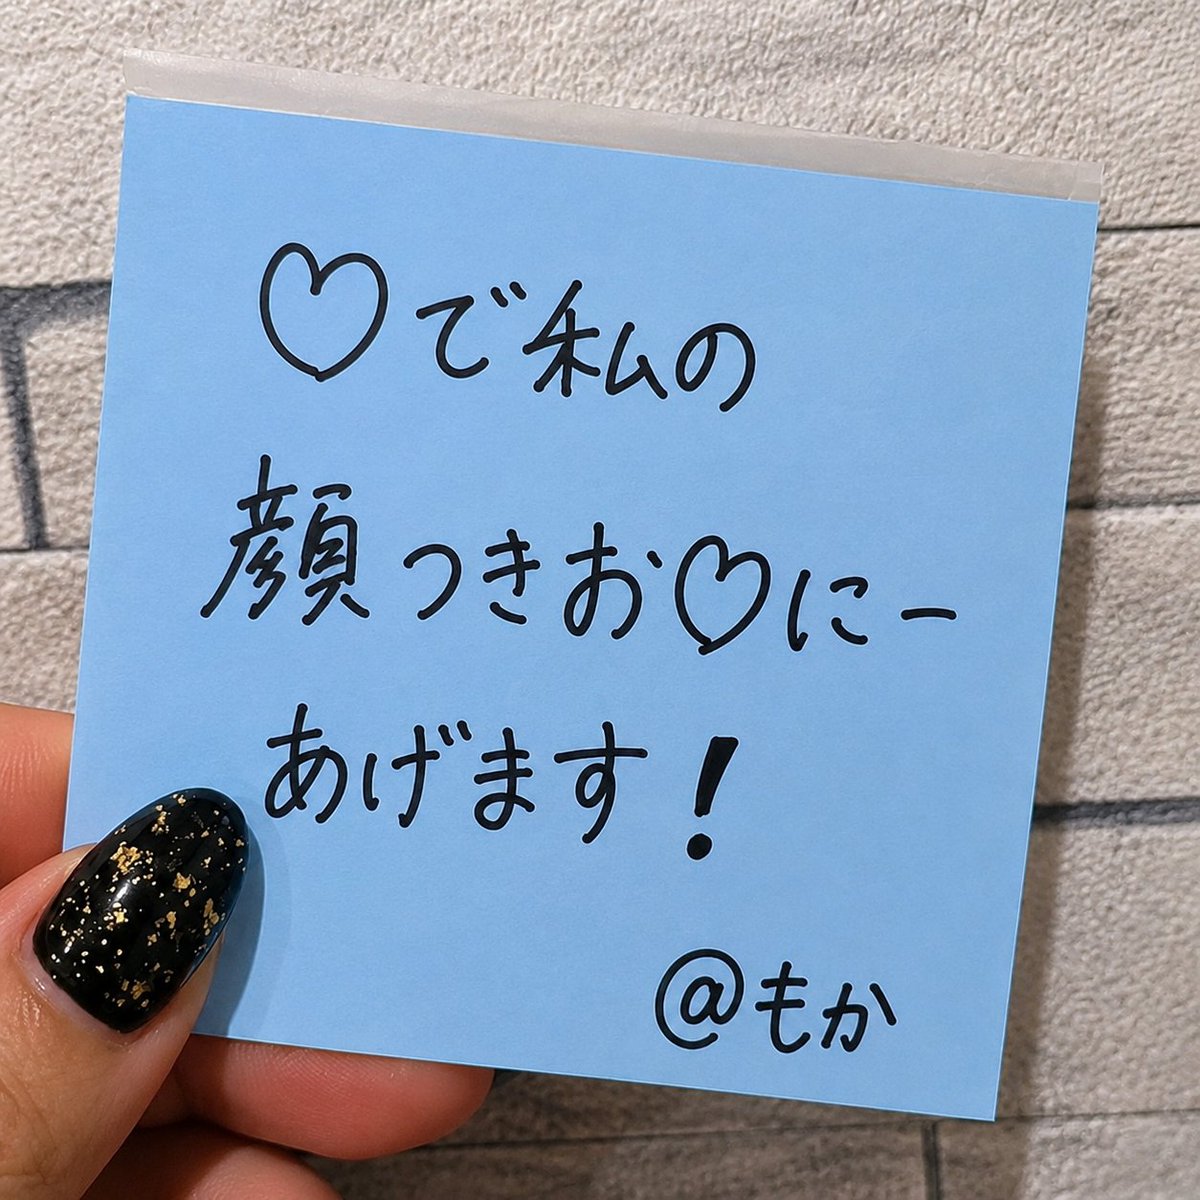 ♡で私の
顔つきお♡にー
あげます！
@もか